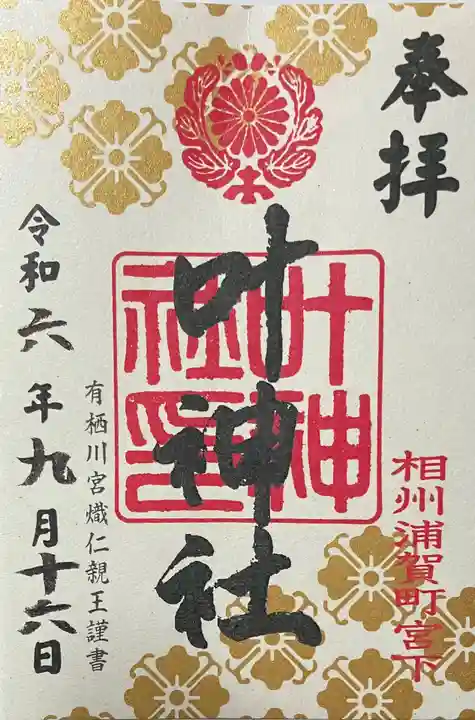 奉拝
相州浦賀町宮下
叶神社
叶神社印
有栖川宮熾仁親王謹書
令和六年九月十六日